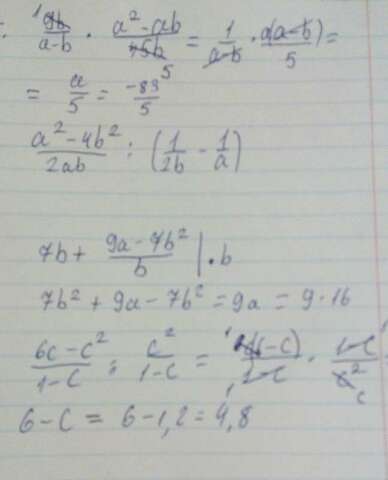 9b/(a-b) · (a²-ab)/45b = 1/(a-b) · a(a-b)/5 =
= a/5 = -83/5
(a²-4b²)/2ab : (1/2b - 1/a)
7b + (9a-7b²)/b | · b
7b² + 9a - 7b² = 9a = 9·16
(6c-c²)/(1-c) : c²/(1-c) = c(6-c)/(1-c) · (1-c)/c²
6-c = 6-1,2 = 4,8